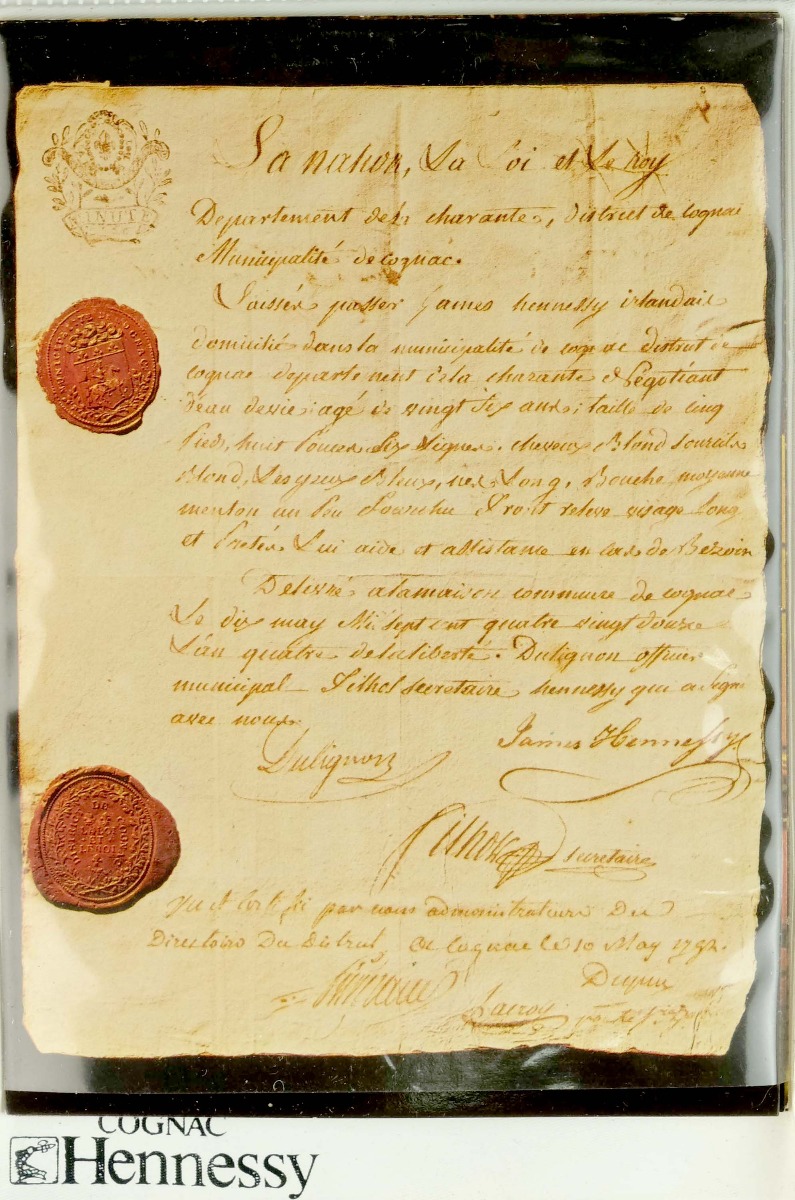 La nation, La Loi et Le Roy
Departement de la charante, district de Cognac
Municipalité de Cognac.
Laissér passer James hennessy irlandais
domicilié dans la municipalité de Cognac district de
Cognac departement de la charante Négotiant
d'eau de vie agé de vingt six ans, taille de cinq
pieds, huit pouces six lignes, cheveux Blond sourcils
Blond, Les yeux Bleux, nez Long, Bouche moyenne
menton un peu fourchu front relevé visage long
et Pretér Lui aide et assistance en cas de Bezoin
Delivré a la maison commune de Cognac
Le dix may Mil sept cent quatre vingt douze
L'an quatre de la liberté. Dulignon officier
municipal secretaire hennessy qui a signé
avec nous
Dulignon
James Hennessy
secretaire
Vu et Certifié par nous administrateurs Du
Directoire Du District de Cognac le 10 May 1792.
Dupuy
Lacroix
MINUTE
DE
LA LOI
LE ROI
COGNAC
Hennessy